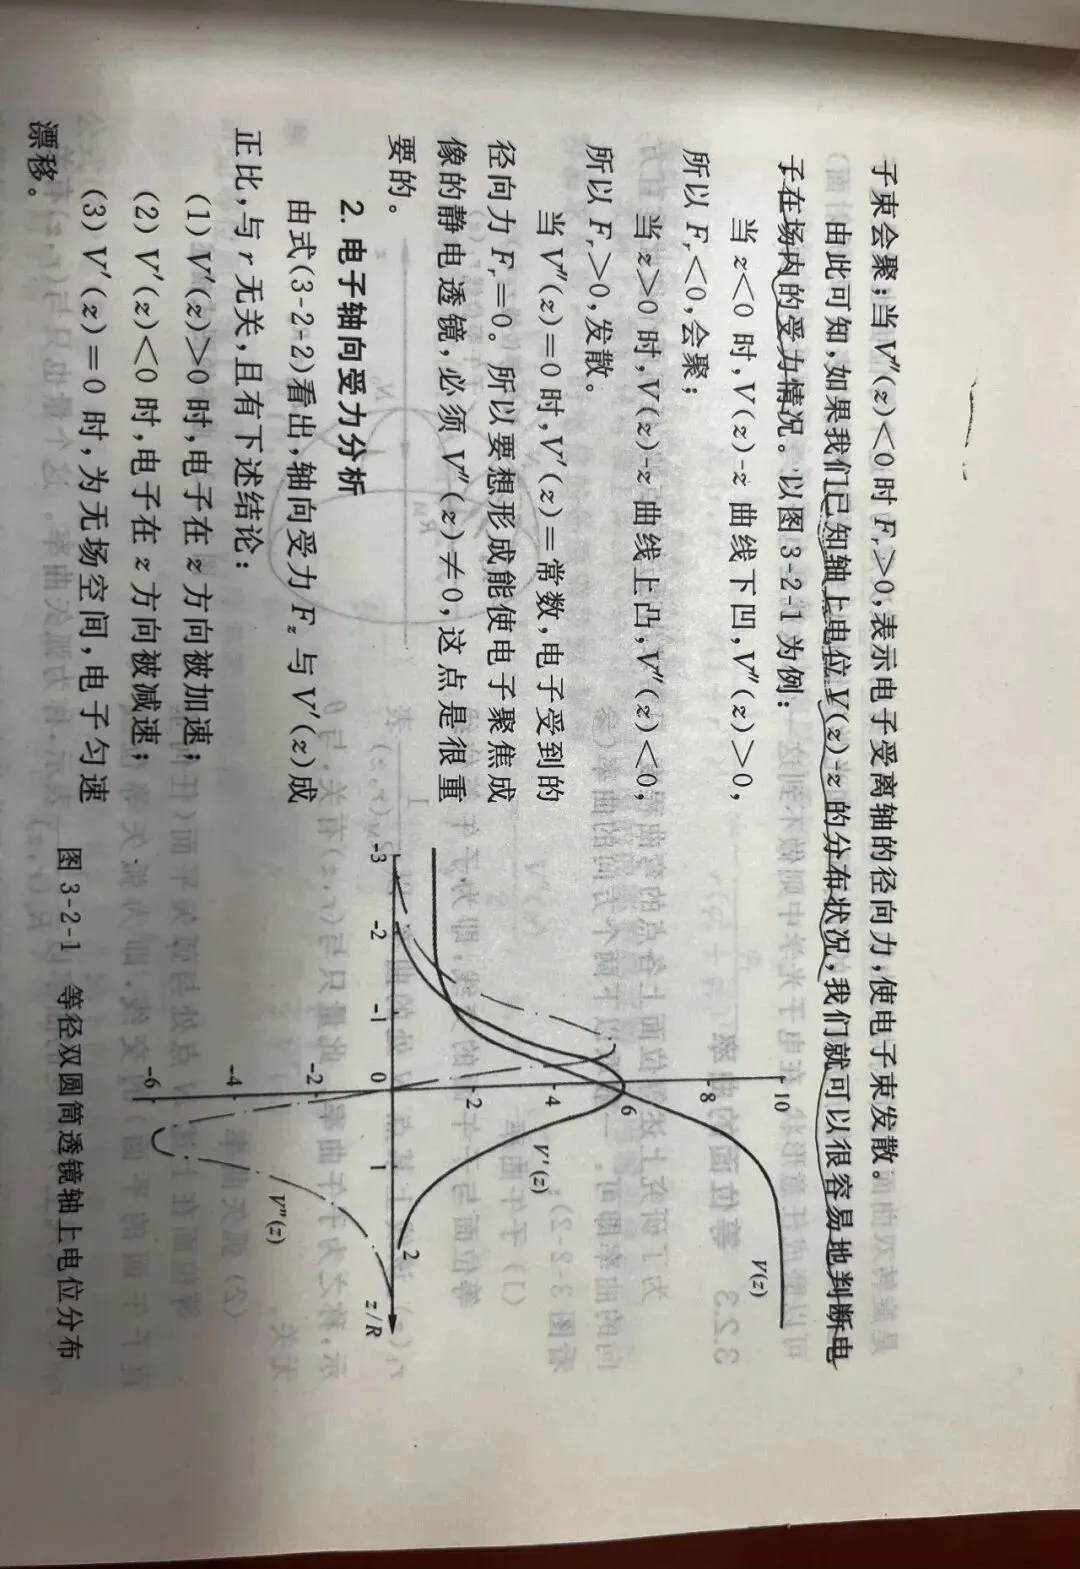 子束会聚;当 V″(z)<0时 Fr>0,表示电子受离轴的径向力,使电子束发散。
由此可知,如果我们已知轴上电位 V(z)-z 的分布状况,我们就可以很容易地判断电
子在场内的受力情况。以图 3-2-1 为例:
当 z<0 时,V(z)-z 曲线下凹,V″(z)>0,
所以 Fr<0,会聚;
当 z>0 时,V(z)-z 曲线上凸,V″(z)<0,
所以 Fr>0,发散。
当 V″(z)=0 时,V′(z)=常数,电子受到的
径向力 Fr=0。所以要想形成能使电子聚焦成
像的静电透镜,必须 V″(z)≠0,这点是很重
要的。
2. 电子轴向受力分析
由式(3-2-2)看出,轴向受力 Fz 与 V′(z)成
正比,与 r 无关,且有下述结论:
(1) V′(z)>0 时,电子在 z 方向被加速;
(2) V′(z)<0 时,电子在 z 方向被减速;
(3) V′(z)=0 时,为无场空间,电子匀速
漂移。
10
V(z)
8
6
4
V′(z)
2
-3
-2
-1
0
1
2
z/R
-2
V″(z)
-4
-6
图 3-2-1 等径双圆筒透镜轴上电位分布